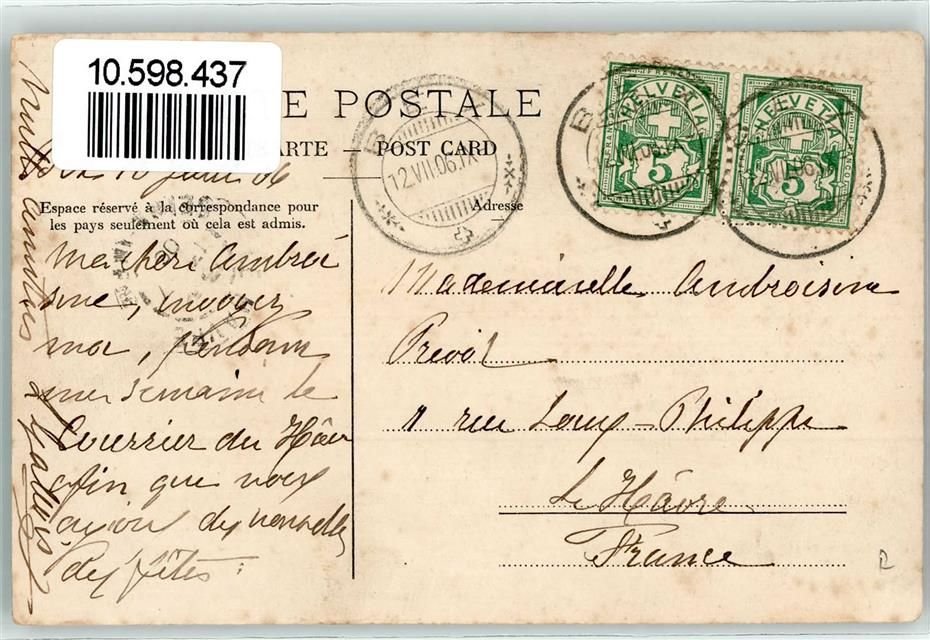 10.598.437
E POSTALE
KARTE — POST CARD
BEX
12.VII.06.IX
HELVETIA
5
HELVETIA
5
10 Juin 06
Espace réservé à la correspondance pour
les pays seulement où cela est admis.
Adresse
Ma chère Ambroi
sine, envoyez
moi, pendant
une semaine le
Courrier du Hâvre
afin que nous
ayons des nouvelles
des fêtes.
Mademoiselle Ambroisine
Prévôt
1 rue Louis-Philippe
Le Hâvre
France